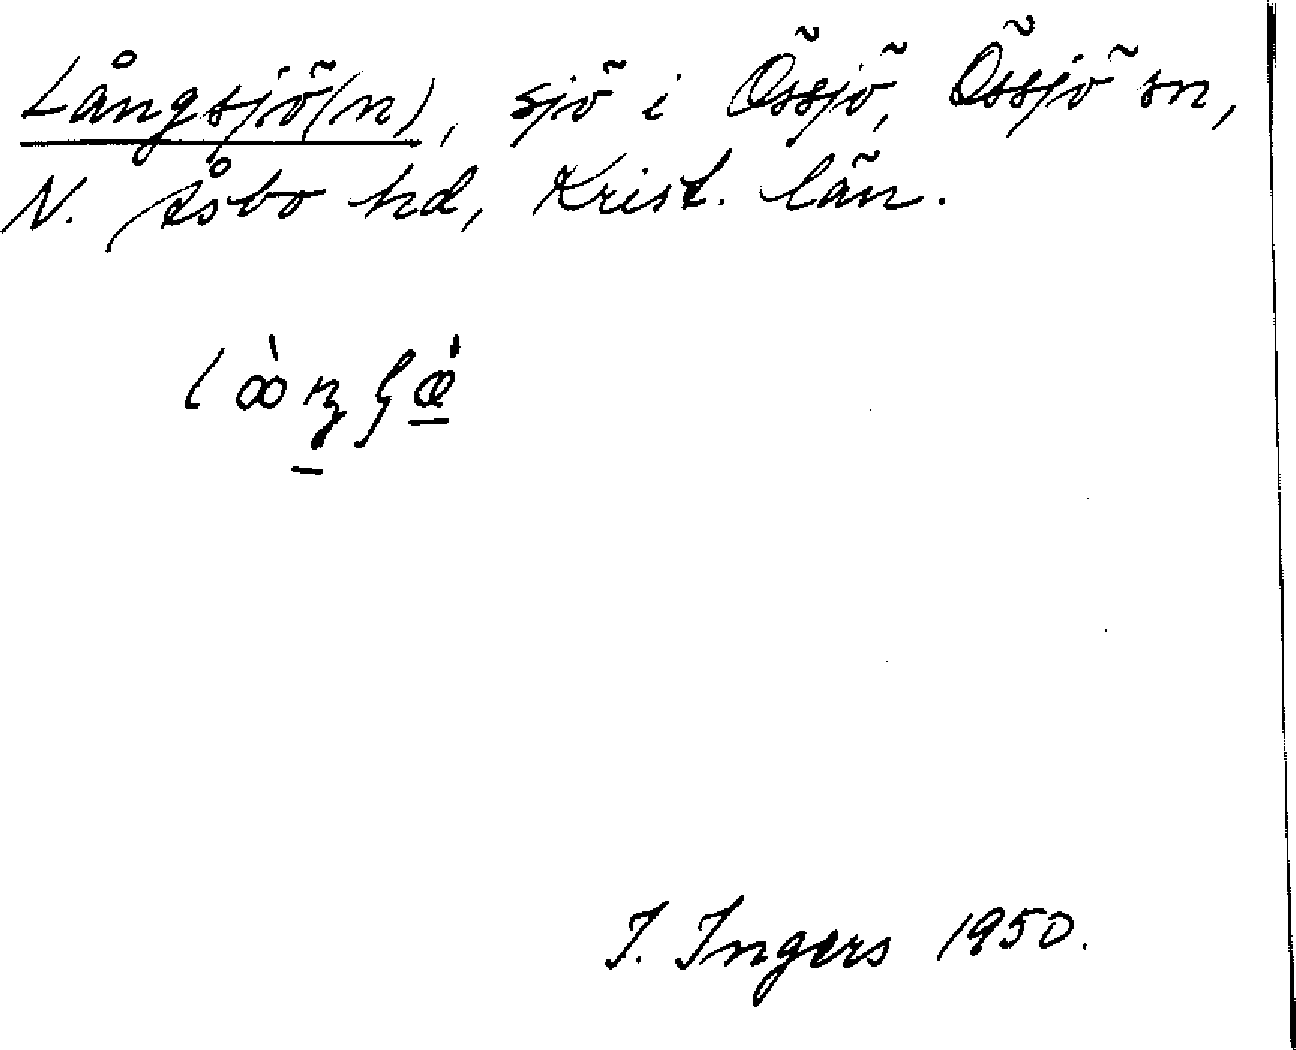 Långsjö(n), sjö i Össjö, Össjö sn,
N. Åsbo hd, Krist. län.
I. Ingers 1950.